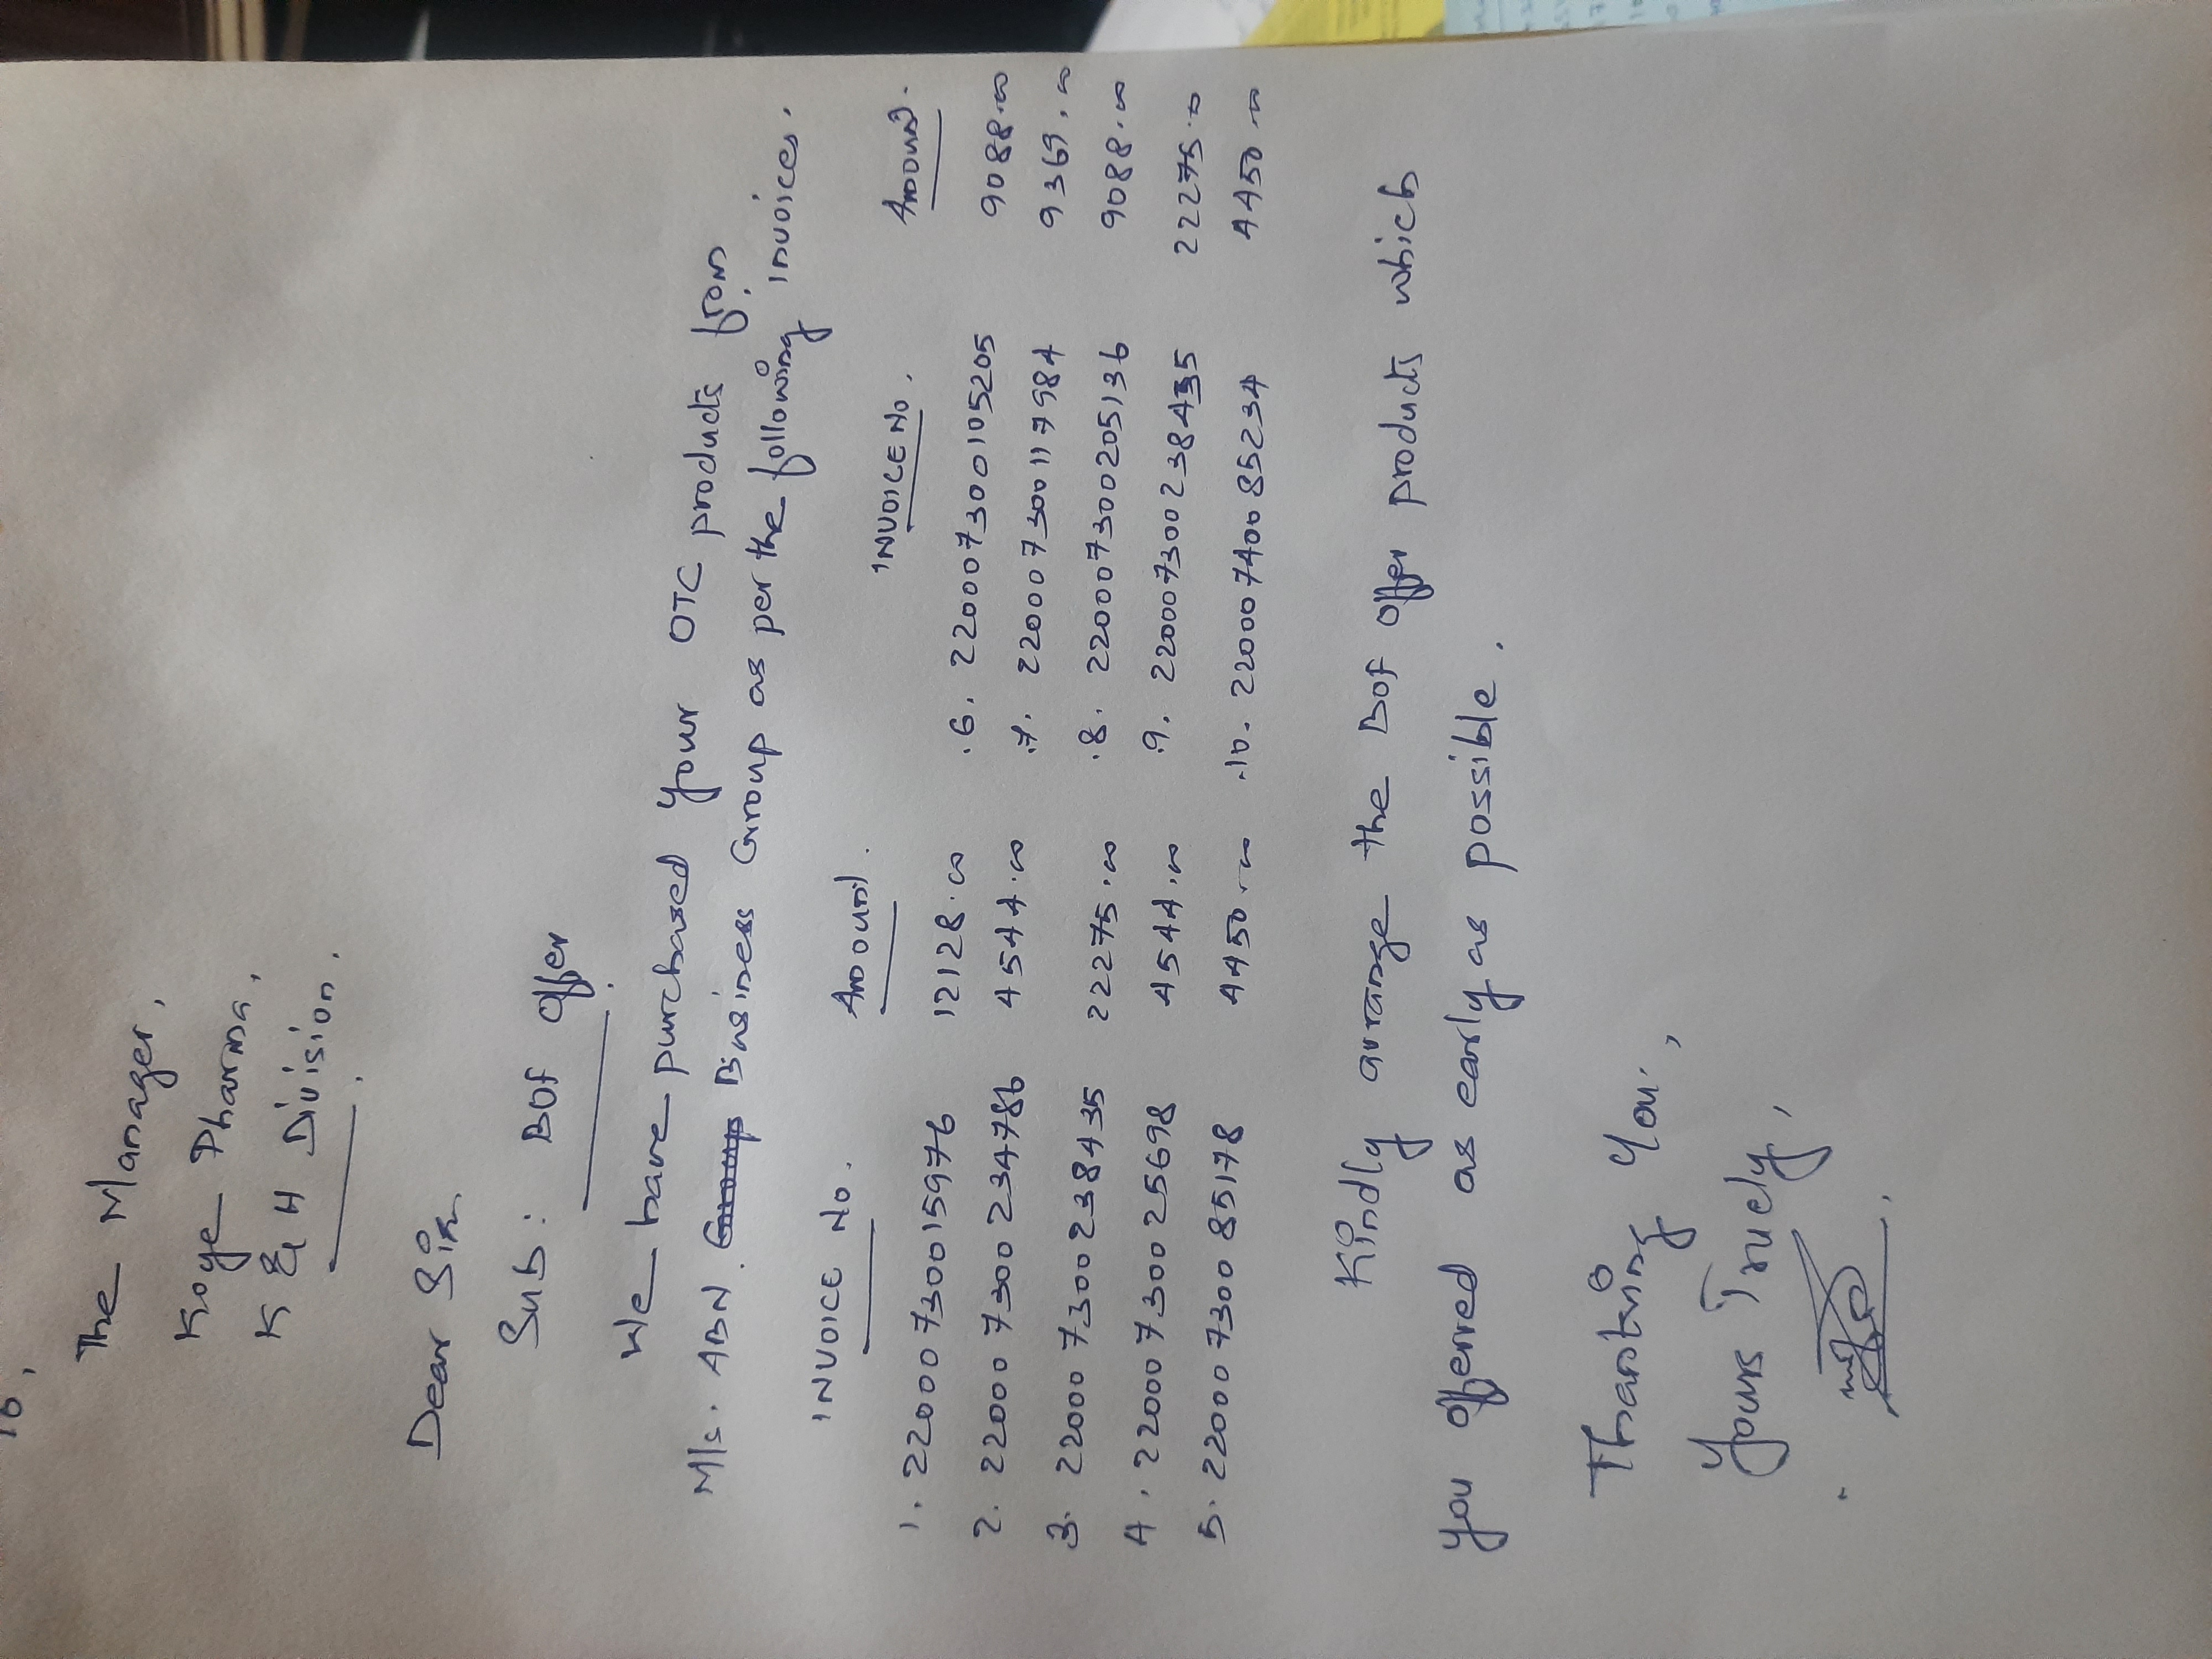 To,
The Manager,
Koye Pharma,
K & H Division.
Dear Sir,
Sub: BOF Offer
We have purchased your OTC products from
M/s. ABN. Group Business Group as per the following invoices.
INVOICE No. Amount. INVOICE No. Amount.
1. 22000730015976 12128.00 .6. 220007300105205 9088.00
2. 220007300234786 4544.00 .7. 220007300117984 9369.00
3. 220007300238435 22275.00 .8. 220007300205136 9088.00
4. 22000730025698 4544.00 .9. 220007300238435 22275.00
5. 22000730085178 4450.00 .10. 22000740085234 4450.00
Kindly arrange the BOF Offer products which
you offerred as early as possible.
Thanking You.,
Yours Truely,